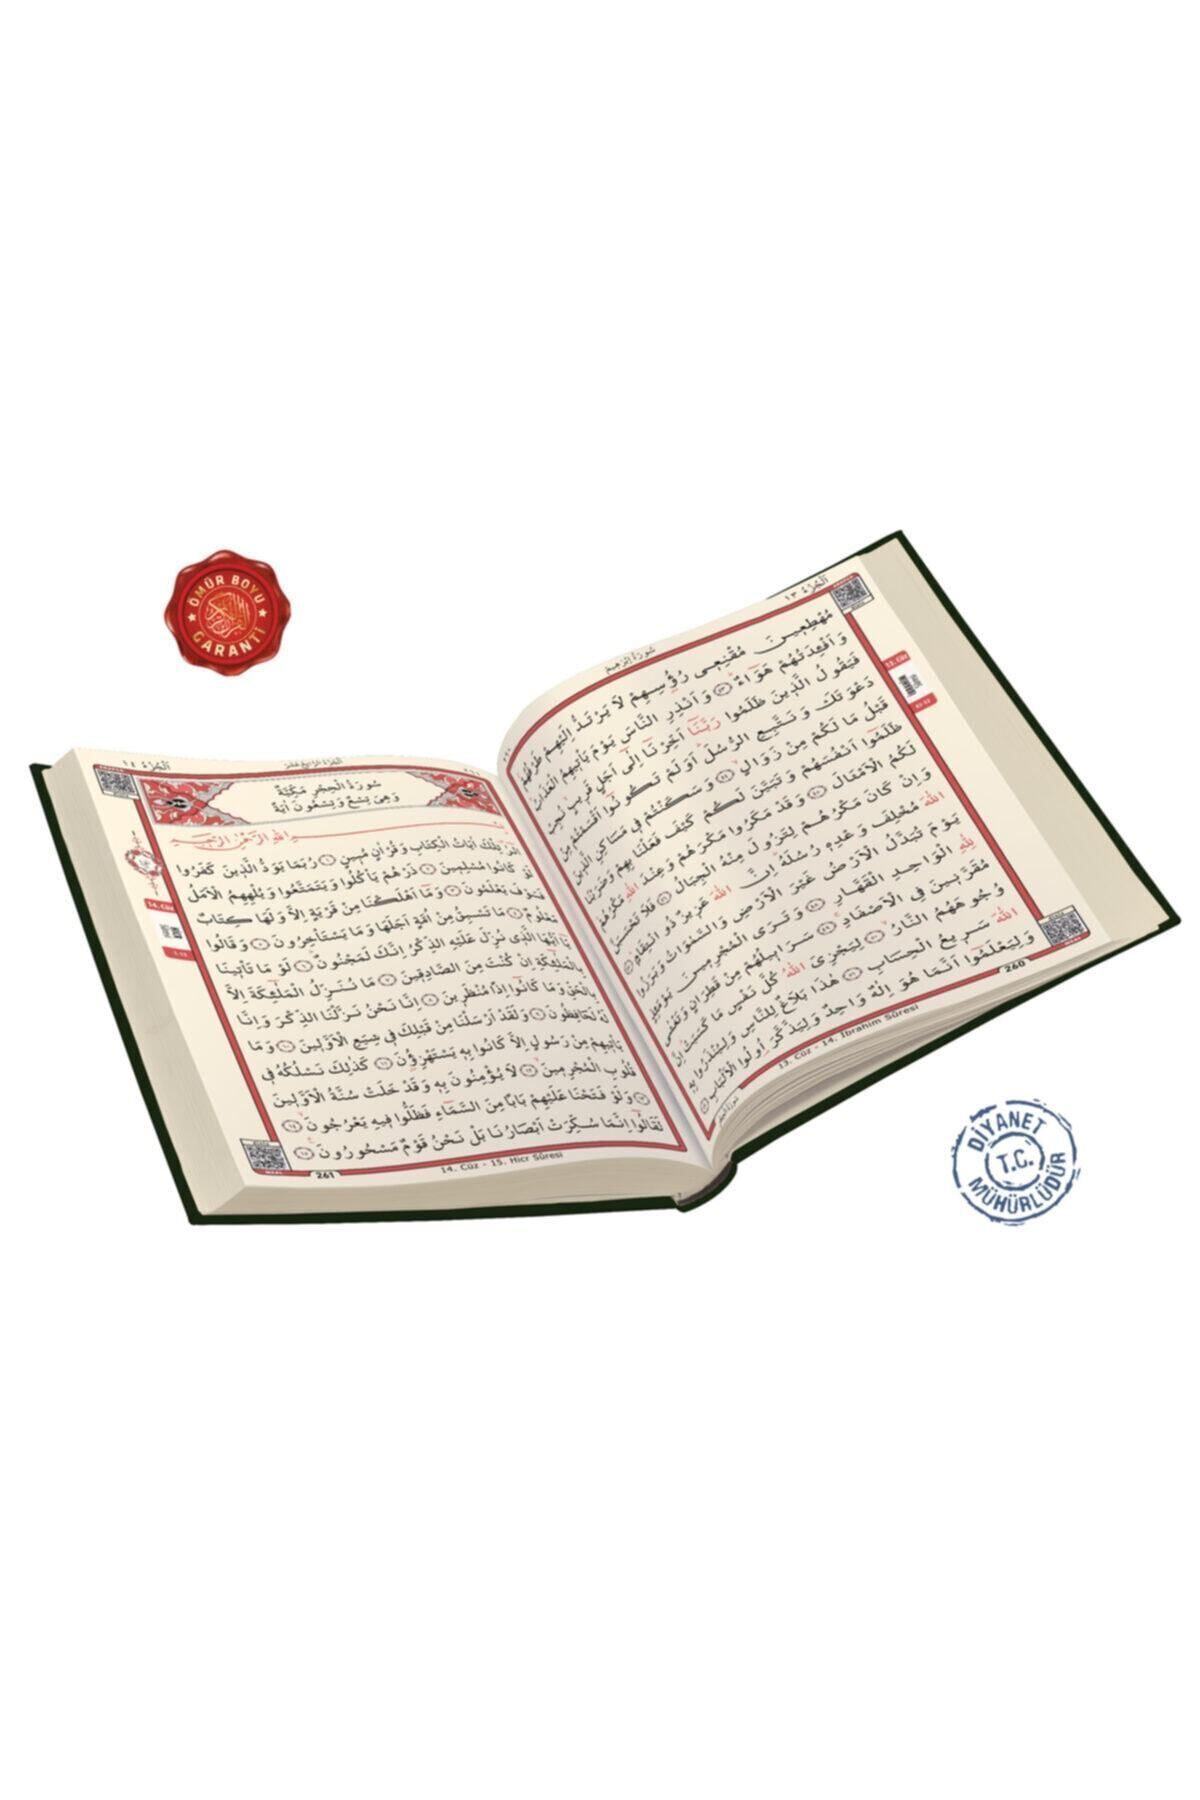 ÖMÜR BOYU
GARANTİ
اَلْجُزْءُ ١٣
سُورَةُ اِبْرٰهِيمَ
مُهْطِعِينَ مُقْنِعِى رُؤُسِهِمْ لَا يَرْتَدُّ اِلَيْهِمْ طَرْفُهُمْ
وَاَفْـِٔدَتُهُمْ هَوَٓاءٌ ﴿٤٣﴾ وَاَنْذِرِ النَّاسَ يَوْمَ يَأْتِيهِمُ الْعَذَابُ
فَيَقُولُ الَّذِينَ ظَلَمُوا رَبَّنَٓا اَخِّرْنَٓا اِلٰٓى اَجَلٍ قَرِيبٍ نُجِبْ
دَعْوَتَكَ وَنَتَّبِعِ الرُّسُلَ اَوَلَمْ تَكُونُٓوا اَقْسَمْتُمْ مِنْ
قَبْلُ مَا لَكُمْ مِنْ زَوَالٍ ﴿٤٤﴾ وَسَكَنْتُمْ فِى مَسَاكِنِ الَّذِينَ
ظَلَمُٓوا اَنْفُسَهُمْ وَتَبَيَّنَ لَكُمْ كَيْفَ فَعَلْنَا بِهِمْ وَضَرَبْنَا
لَكُمُ الْاَمْثَالَ ﴿٤٥﴾ وَقَدْ مَكَرُوا مَكْرَهُمْ وَعِنْدَ اللّٰهِ مَكْرُهُمْ
وَاِنْ كَانَ مَكْرُهُمْ لِتَزُولَ مِنْهُ الْجِبَالُ ﴿٤٦﴾ فَلَا تَحْسَبَنَّ
اللّٰهَ مُخْلِفَ وَعْدِهٖ رُسُلَهُ اِنَّ اللّٰهَ عَزِيزٌ ذُو انْتِقَامٍ ﴿٤٧﴾
يَوْمَ تُبَدَّلُ الْاَرْضُ غَيْرَ الْاَرْضِ وَالسَّمٰوَاتُ وَبَرَزُوا
لِلّٰهِ الْوَاحِدِ الْقَهَّارِ ﴿٤٨﴾ وَتَرَى الْمُجْرِمِينَ يَوْمَئِذٍ
مُقَرَّنِينَ فِى الْاَصْفَادِ ﴿٤٩﴾ سَرَابِيلُهُمْ مِنْ قَطِرَانٍ وَتَغْشٰى
وُجُوهَهُمُ النَّارُ ﴿٥٠﴾ لِيَجْزِىَ اللّٰهُ كُلَّ نَفْسٍ مَا كَسَبَتْ اِنَّ
اللّٰهَ سَرِيعُ الْحِسَابِ ﴿٥١﴾ هٰذَا بَلَاغٌ لِلنَّاسِ وَلِيُنْذَرُوا بِهٖ
وَلِيَعْلَمُٓوا اَنَّمَا هُوَ اِلٰهٌ وَاحِدٌ وَلِيَذَّكَّرَ اُولُوا الْاَلْبَابِ ﴿٥٢﴾
13. Cüz
43-52
13. Cüz - 14. İbrahim Sûresi
260
اَلْجُزْءُ ١٤
سُورَةُ الْحِجْرِ مَكِّيَّةٌ
وَهِىَ تِسْعٌ وَتِسْعُونَ اٰيَةً
بِسْمِ اللّٰهِ الرَّحْمٰنِ الرَّحِيمِ
الٓرٰ تِلْكَ اٰيَاتُ الْكِتَابِ وَقُرْاٰنٍ مُبِينٍ ﴿١﴾ رُبَمَا يَوَدُّ الَّذِينَ كَفَرُوا
لَوْ كَانُوا مُسْلِمِينَ ﴿٢﴾ ذَرْهُمْ يَأْكُلُوا وَيَتَمَتَّعُوا وَيُلْهِهِمُ الْاَمَلُ
فَسَوْفَ يَعْلَمُونَ ﴿٣﴾ وَمَٓا اَهْلَكْنَا مِنْ قَرْيَةٍ اِلَّا وَلَهَا كِتَابٌ
مَعْلُومٌ ﴿٤﴾ مَا تَسْبِقُ مِنْ اُمَّةٍ اَجَلَهَا وَمَا يَسْتَأْخِرُونَ ﴿٥﴾ وَقَالُوا
يَٓا اَيُّهَا الَّذِى نُزِّلَ عَلَيْهِ الذِّكْرُ اِنَّكَ لَمَجْنُونٌ ﴿٦﴾ لَوْ مَا تَأْتِينَا
بِالْمَلٰٓئِكَةِ اِنْ كُنْتَ مِنَ الصَّادِقِينَ ﴿٧﴾ مَا نُنَزِّلُ الْمَلٰٓئِكَةَ اِلَّا
بِالْحَقِّ وَمَا كَانُٓوا اِذًا مُنْظَرِينَ ﴿٨﴾ اِنَّا نَحْنُ نَزَّلْنَا الذِّكْرَ وَاِنَّا
لَهُ لَحَافِظُونَ ﴿٩﴾ وَلَقَدْ اَرْسَلْنَا مِنْ قَبْلِكَ فِى شِيَعِ الْاَوَّلِينَ ﴿١٠﴾ وَمَا
يَأْتِيهِمْ مِنْ رَسُولٍ اِلَّا كَانُوا بِهٖ يَسْتَهْزِؤُنَ ﴿١١﴾ كَذٰلِكَ نَسْلُكُهُ فِى
قُلُوبِ الْمُجْرِمِينَ ﴿١٢﴾ لَا يُؤْمِنُونَ بِهٖ وَقَدْ خَلَتْ سُنَّةُ الْاَوَّلِينَ
﴿١٣﴾ وَلَوْ فَتَحْنَا عَلَيْهِمْ بَابًا مِنَ السَّمَٓاءِ فَظَلُّوا فِيهِ يَعْرُجُونَ ﴿١٤﴾
لَقَالُٓوا اِنَّمَا سُكِّرَتْ اَبْصَارُنَا بَلْ نَحْنُ قَوْمٌ مَسْحُورُونَ ﴿١٥﴾
14. Cüz
1-15
14. Cüz - 15. Hicr Sûresi
261
DİYANET
T.C.
MÜHÜRLÜDÜR